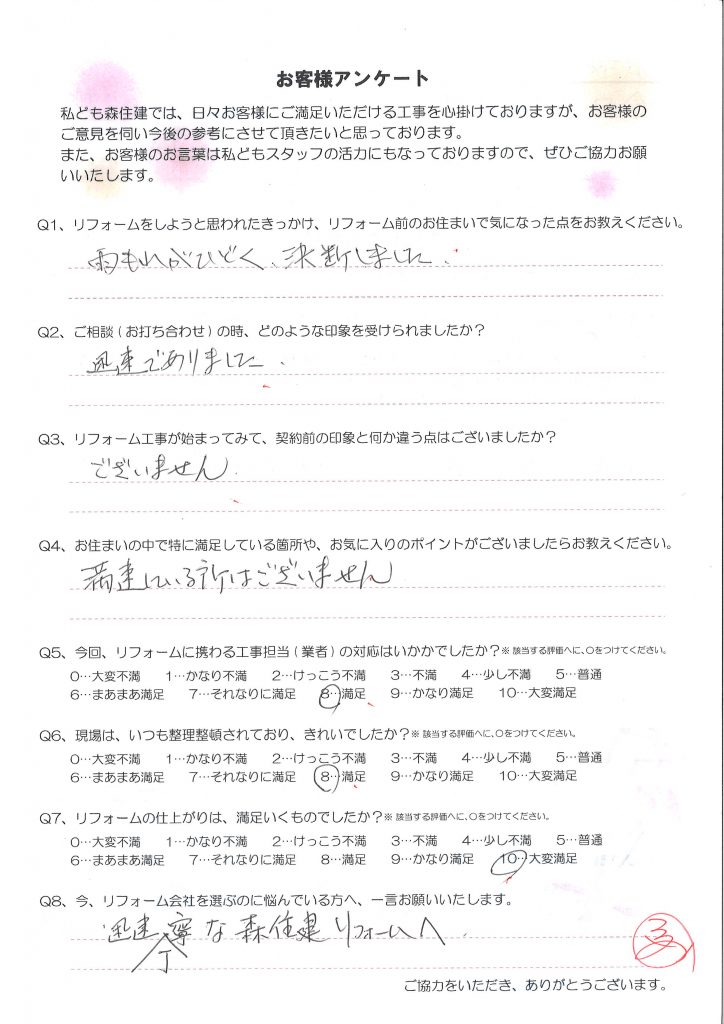 お客様アンケート
私ども森住建では、日々お客様にご満足いただける工事を心掛けておりますが、お客様の
ご意見を伺い今後の参考にさせて頂きたいと思っております。
また、お客様のお言葉は私どもスタッフの活力にもなっておりますので、ぜひご協力お願
いいたします。
Q1、リフォームをしようと思われたきっかけ、リフォーム前のお住まいで気になった点をお教えください。
雨もれがひどく、決断しました.
Q2、ご相談(お打ち合わせ)の時、どのような印象を受けられましたか?
迅速でありました.
Q3、リフォーム工事が始まってみて、契約前の印象と何か違う点はございましたか?
ございません.
Q4、お住まいの中で特に満足している箇所や、お気に入りのポイントがございましたらお教えください。
している所はございません
Q5、今回、リフォームに携わる工事担当(業者)の対応はいかかでしたか?※該当する評価へに、○をつけてください。
0…大変不満 1…かなり不満 2…けっこう不満 3…不満 4…少し不満 5…普通
6…まあまあ満足 7…それなりに満足 8…満足 9…かなり満足 10…大変満足
Q6、現場は、いつも整理整頓されており、きれいでしたか?※該当する評価へに、○をつけてください。
0…大変不満 1…かなり不満 2…けっこう不満 3…不満 4…少し不満 5…普通
6…まあまあ満足 7…それなりに満足 8…満足 9…かなり満足 10…大変満足
Q7、リフォームの仕上がりは、満足いくものでしたか?※該当する評価へに、○をつけてください。
0…大変不満 1…かなり不満 2…けっこう不満 3…不満 4…少し不満 5…普通
6…まあまあ満足 7…それなりに満足 8…満足 9…かなり満足 10…大変満足
Q8、今、リフォーム会社を選ぶのに悩んでいる方へ、一言お願いいたします。
迅速丁寧な森住建リフォームへ
ご協力をいただき、ありがとうございます。